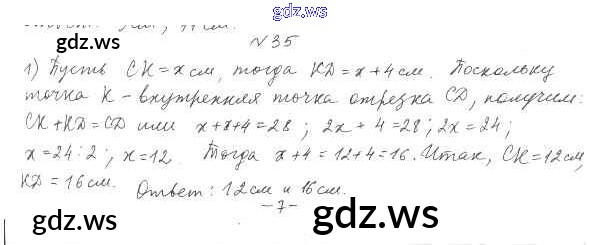 gdz.ws
№35
gdz.ws gdz.ws
1) Пусть СК = x см, тогда KD = x + 4 см. Поскольку
точка К - внутренняя точка отрезка CD, получим:
СК + KD = CD или x + x + 4 = 28; 2x + 4 = 28; 2x = 24;
x = 24 : 2; x = 12. Тогда x + 4 = 12 + 4 = 16. Итак, СК = 12 см,
KD = 16 см. Ответ: 12 см и 16 см.
- 7 -
gdz.ws gdz.ws
gdz.ws